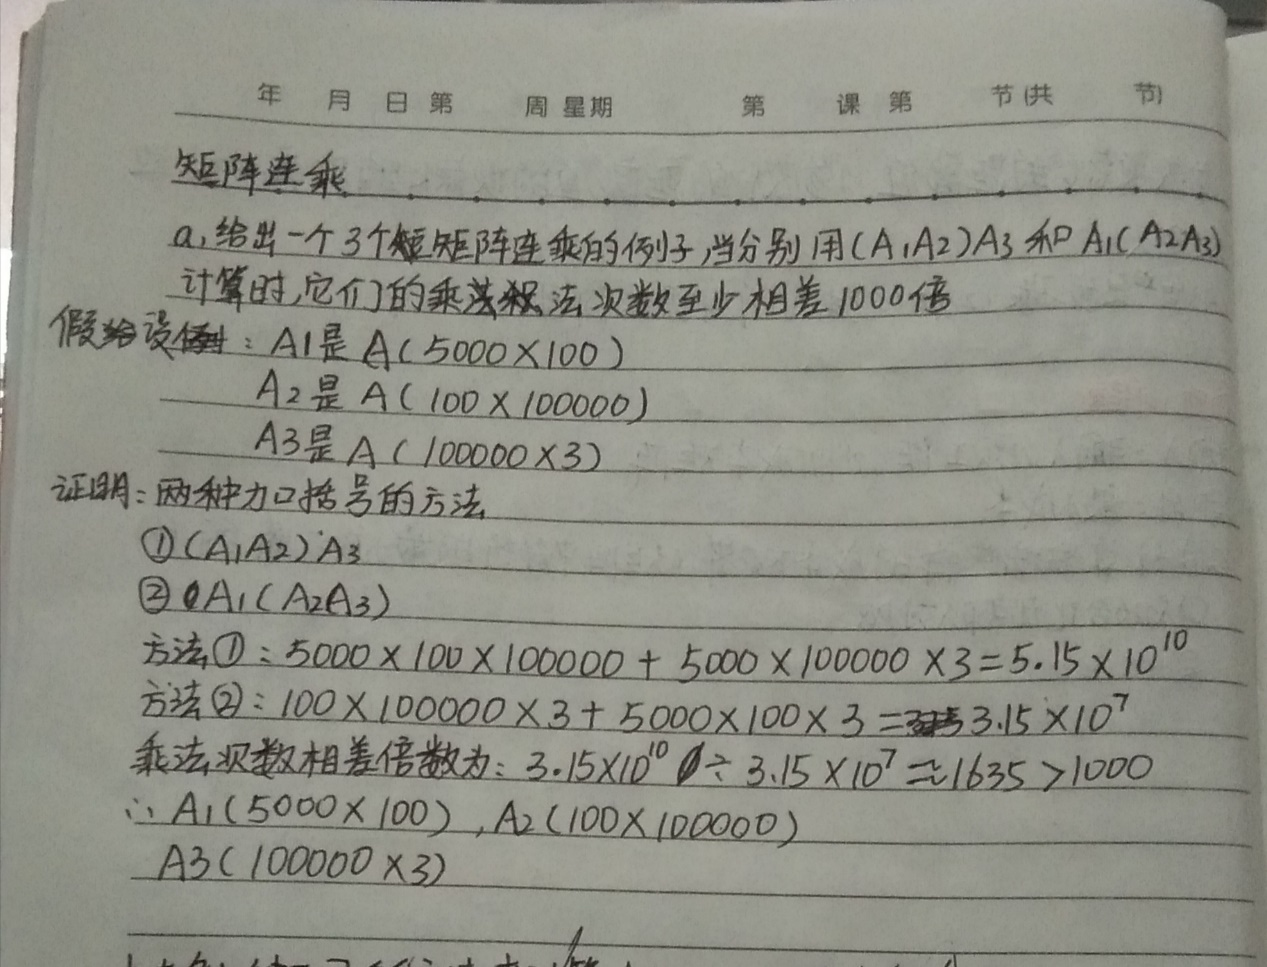 年 月 日 第 周 星期 第 课 第 节(共 节)
矩阵连乘
a,给出一个3个矩阵连乘的例子,当分别用(A1A2)A3和A1(A2A3)
计算时,它们的乘法次数至少相差1000倍
假设: A1是A(5000×100)
A2是A(100×100000)
A3是A(100000×3)
证明:两种加括号的方法
①(A1A2)A3
②A1(A2A3)
方法①:5000×100×100000+5000×100000×3=5.15×10¹⁰
方法②:100×100000×3+5000×100×3=3.15×10⁷
乘法次数相差倍数为:3.15×10¹⁰÷3.15×10⁷≈1635>1000
∴A1(5000×100),A2(100×100000)
A3(100000×3)